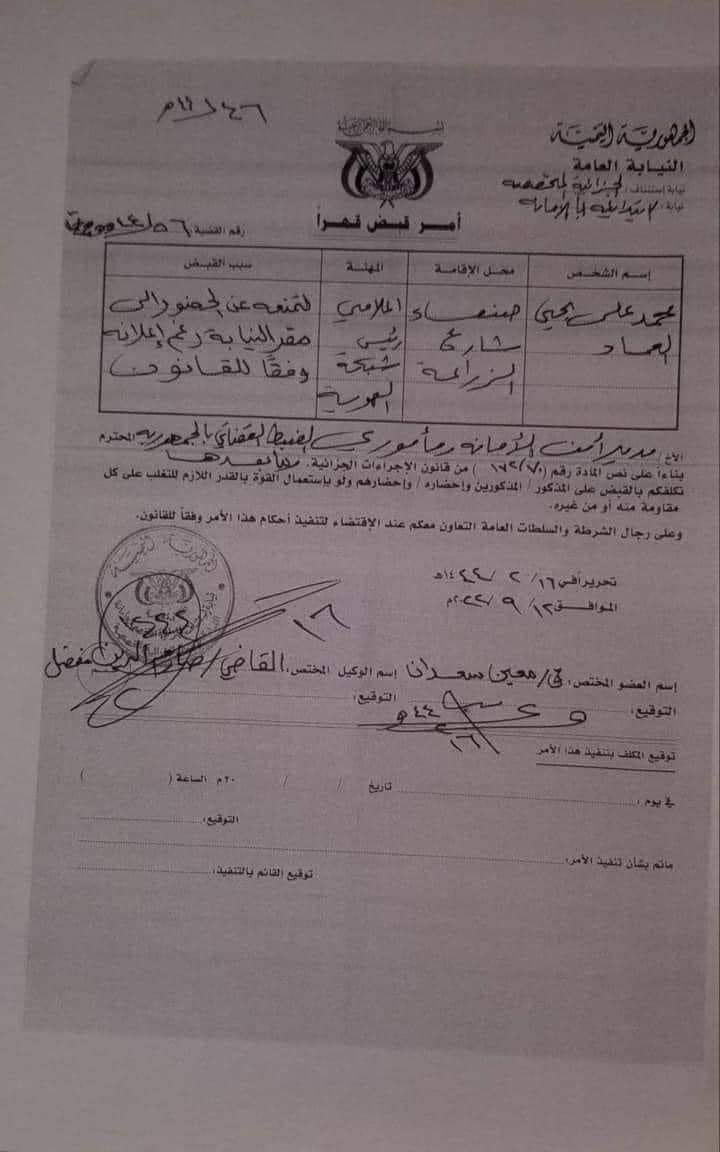 الجمهورية اليمنية
النيابة العامة
نيابة إستئناف: الجزائية المتخصصة
نيابة: الابتدائية بالأمانة
أمر قبض قهراً
رقم القضية
إسم الشخص محل الإقامة المهنة سبب القبض
محمد علي يحيى صنعاء الملامي لتمنعه عن الحضور الى
العماد شارع رئيس مقر النيابة رغم إعلانه
الزراعة شبكة وفقاً للقانون
الهوية
الأخ/ مدير أمن الأمانة ومأموري الضبط القضائي بالجمهورية المحترم
بناءاً على نص المادة رقم (٧٠/١٦٢) من قانون الإجراءات الجزائية. وما بعدها
نكلفكم بالقبض على المذكور / المذكورين وإحضاره / وإحضارهم ولو بإستعمال القوة بالقدر اللازم للتغلب على كل
مقاومة منه أو من غيره.
وعلى رجال الشرطة والسلطات العامة التعاون معكم عند الإقتضاء لتنفيذ أحكام هذا الأمر وفقاً للقانون.
تحريراً في ١٦/ ٢ / ١٤٤٤هـ
الموافق ١٢/ ٩ / ٢٠٢٢م
إسم العضو المختص: ق/ معين سعدان إسم الوكيل المختص: القاضي/ مفضل
التوقيع: التوقيع:
توقيع المكلف بتنفيذ هذا الأمر
في يوم: تاريخ / / ٢٠م الساعة ( )
التوقيع:
ماتم بشأن تنفيذ الأمر:
توقيع القائم بالتنفيذ: